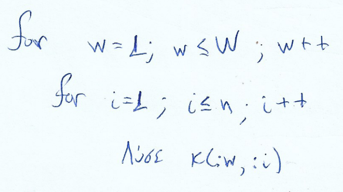 for w=1; w≤W; w++
for i=1; i≤n; i++
Λύσε K(:w, :i)